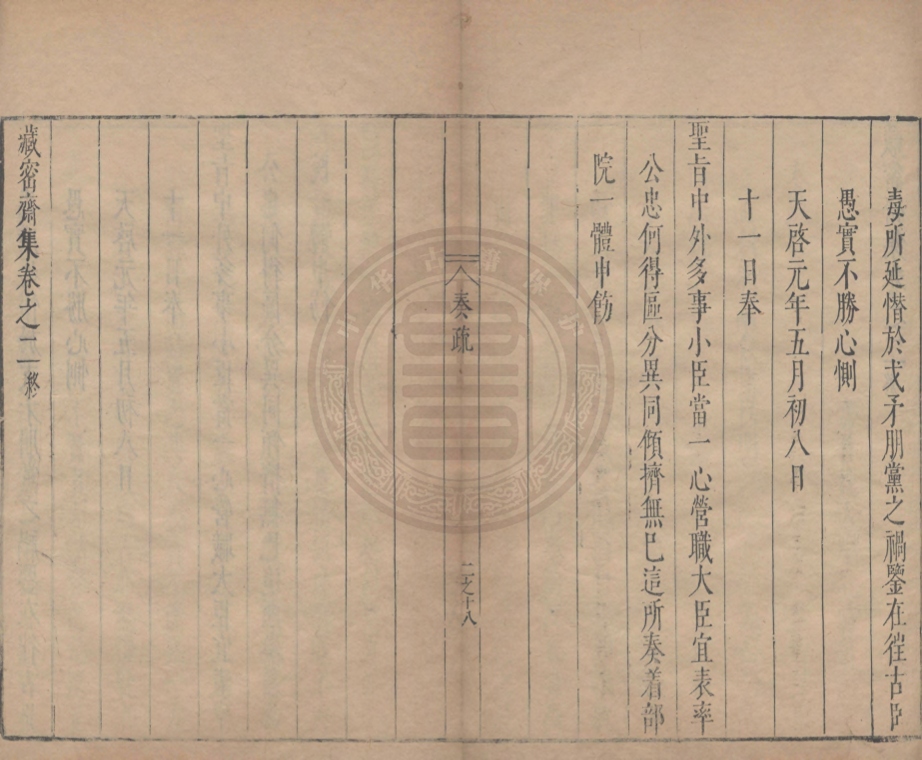 毒所延憯於戈矛朋黨之禍鑒在徃古臣
愚實不勝心惻
天啓元年五月初八日
十一日奉
聖旨中外多事小臣當一心營職大臣宜表率
公忠何得區分異同傾擠無已這所奏着部
院一體申飭
奏疏
二之十八
藏密齋集卷之二終